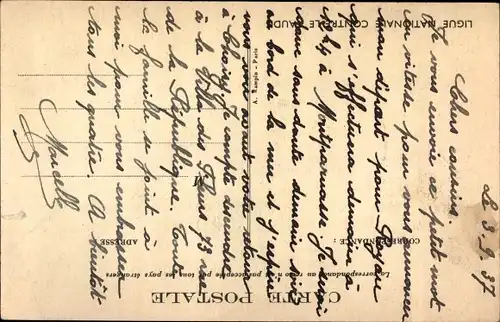 Le 3-9-37
Chers cousins.
Je vous envoie ce petit mot
en vitesse pour vous annoncer
mon départ pour Royan
qui s'effectuera demain à
à Montparnasse. Je serai
donc sans doute demain soir
au bord de la mer et j'espère
vous voir avant votre retour
à Je compte descendre
à la Villa des Fleurs 73 rue
de la République. Toute
la famille se joint à
moi pour vous embrasser
tous les quatre. A bientôt
Marcelle
CARTE POSTALE
La correspondance au recto n'est pas acceptée par tous les pays étrangers
CORRESPONDANCE :
ADRESSE
M
A. Rampin - Paris
LIGUE NATIONALE CONTRE LE TAUDIS